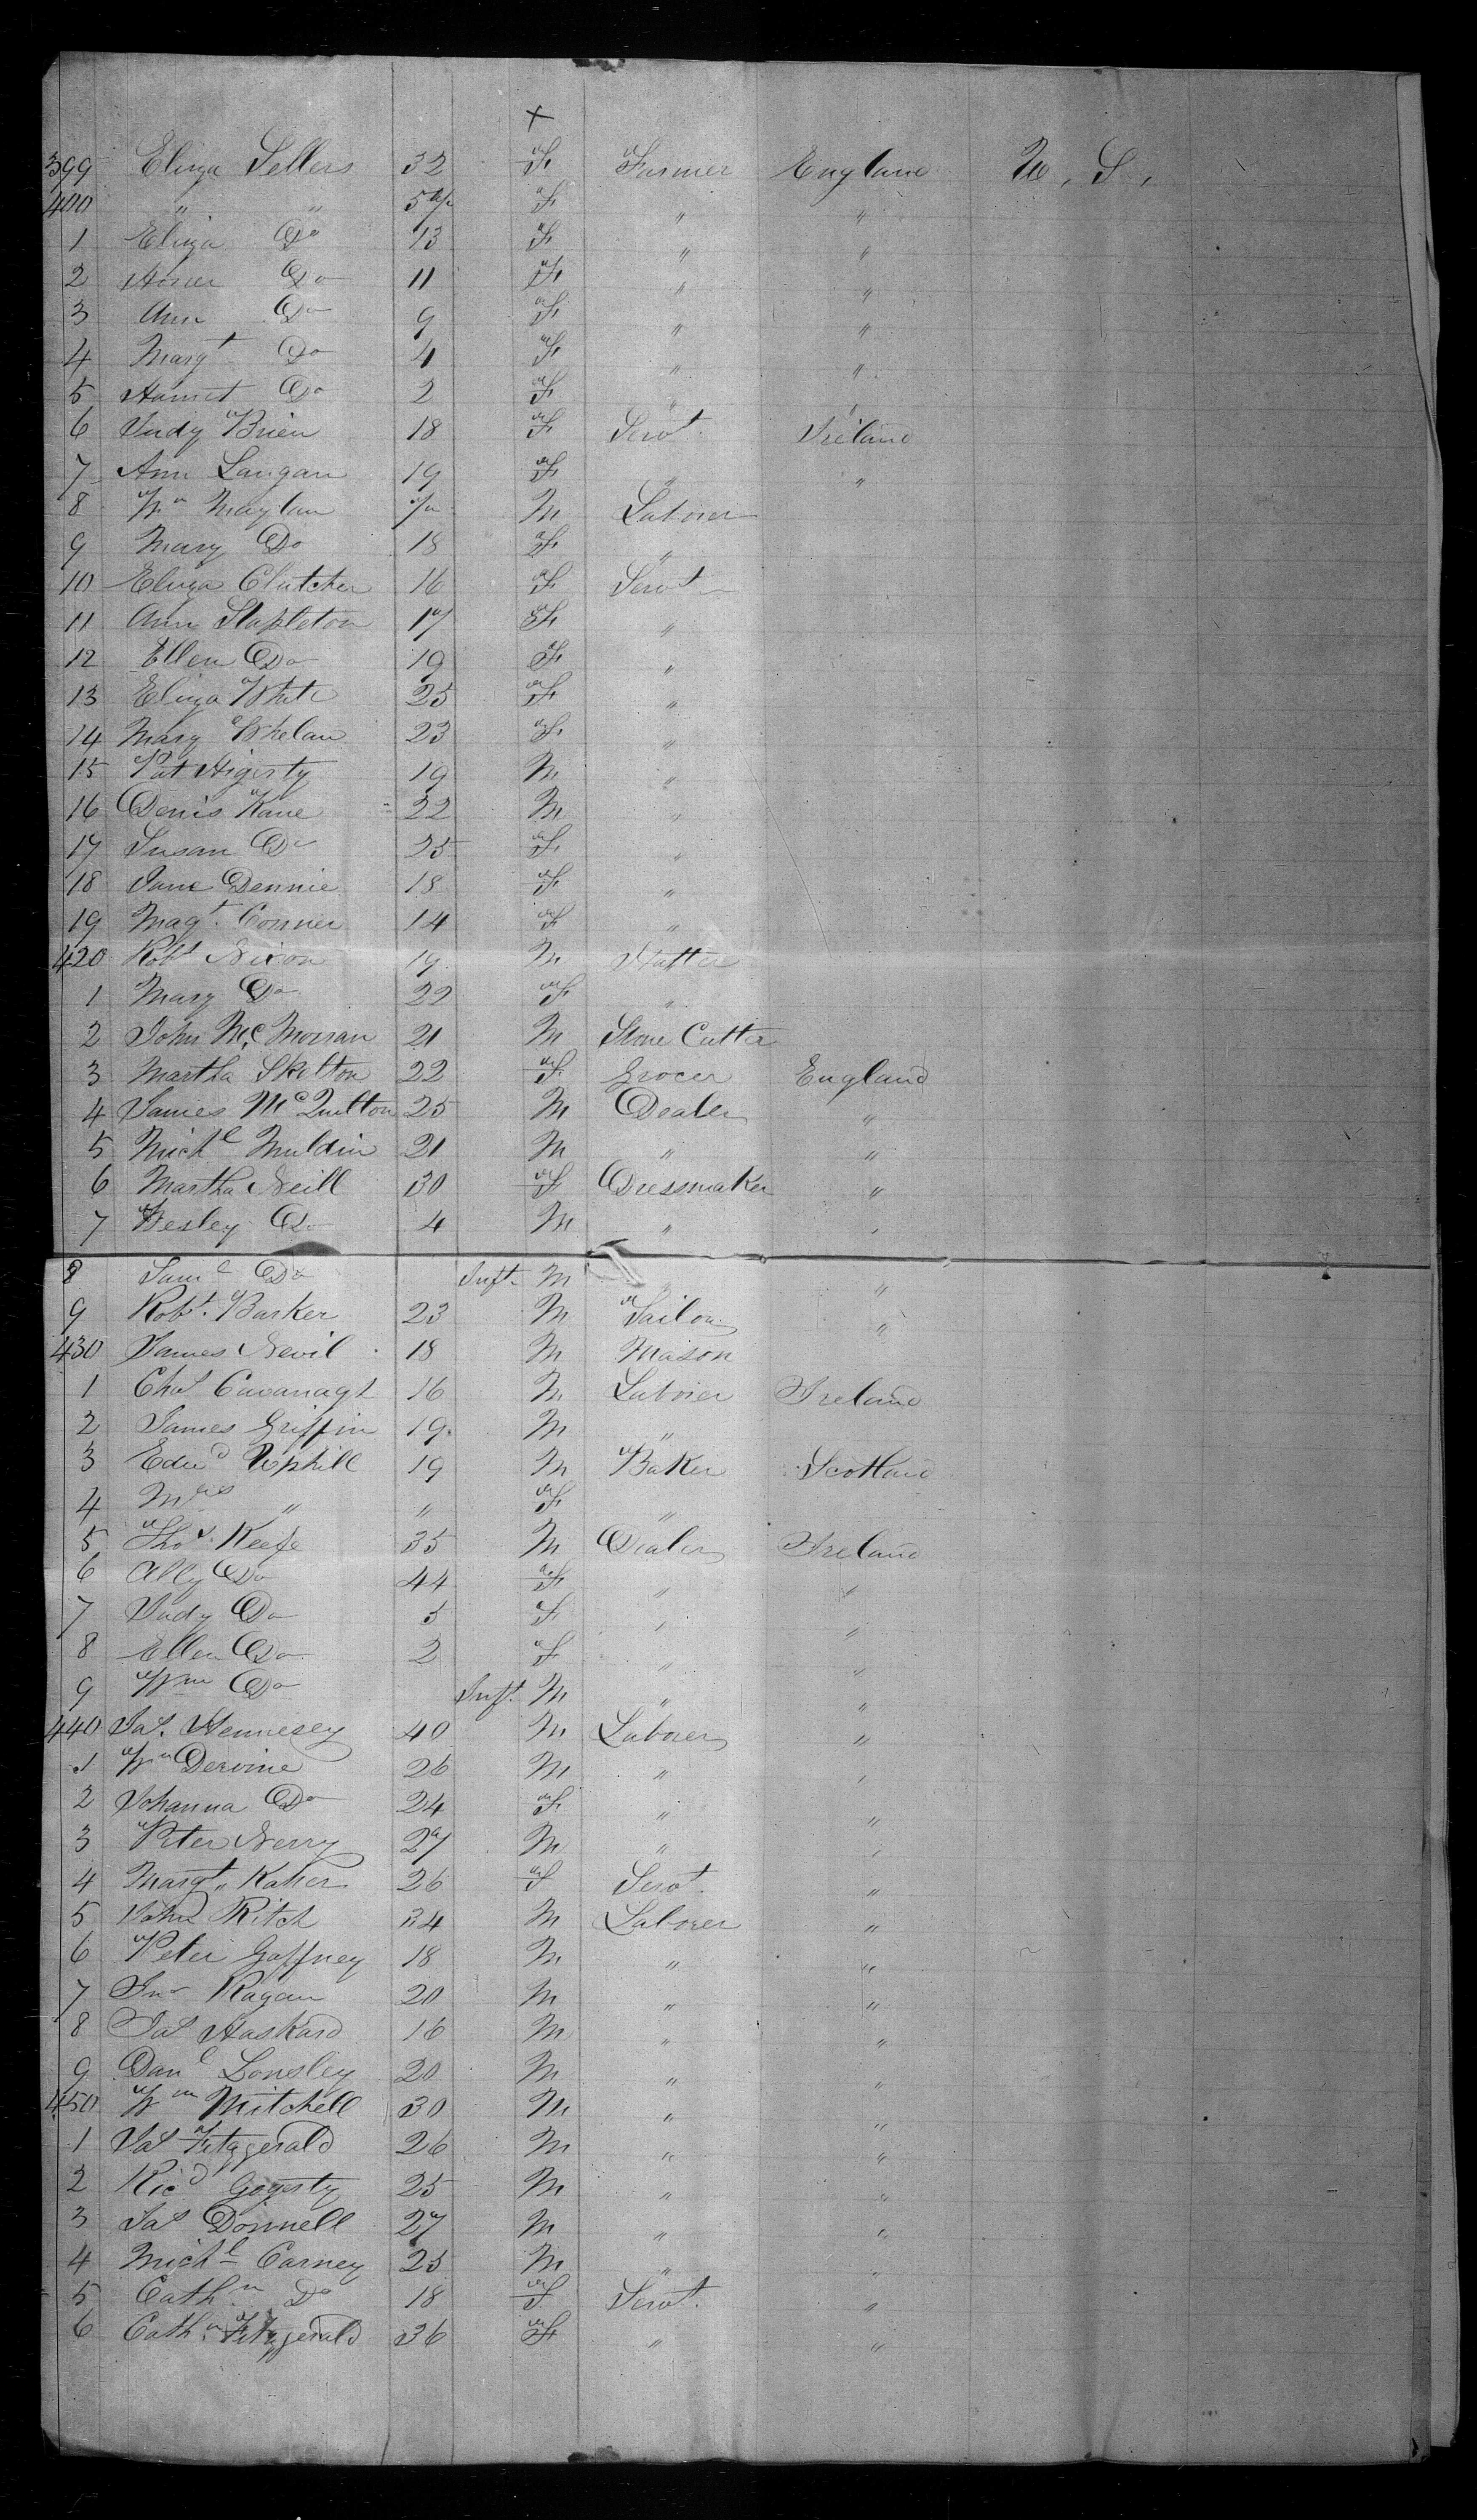 x
399 Eliza Sellers 32 F Farmer England U. S.
400 " " F " "
1 Eliza Do 13 F " "
2 Do 11 F " "
3 Ann Do 9 F " "
4 Margt Do 4 F " "
5 Do 2 F " "
6 Judy Brien 18 F Servt. Ireland
7 Ann Langan 19 F " "
8 Wm M Laborer
9 Mary Do 18 F "
10 Eliza Clutcher 16 F Servt
11 Ann Stapleton 17 F "
12 Ellen Do 19 F "
13 Eliza White 25 F "
14 Mary Whelan 23 F "
15 Pat Higirty 19 M "
16 Denis Kane 22 M "
17 Susan Do 25 F "
18 Jane Dennie 18 F "
19 Magt. Conner 14 F "
420 Robt Nixon 19 M Hatter
1 Mary Do 22 F "
2 John Mc Morran 21 M Stone Cutter
3 Martha Skelton 22 F Grocer England
4 James McQuilton 25 M Dealer "
5 Michl Muldin 21 M " "
6 Martha Neill 30 F Dressmaker "
7 Wesley Do 4 M " "
8 Saml Do Inft. M " "
9 Robt. Barker 23 M Tailor "
430 James Nevil 18 M Mason
1 Chas Cavanagh 16 M Laborer Ireland
2 James Griffin 19 M "
3 Edwd Uphill 19 M Baker Scotland
4 Mrs " " F "
5 Thos. Keefe 35 M Dealer Ireland
6 Ally Do 44 F " "
7 Judy Do 5 F " "
8 Ellen Do 2 F " "
9 Wm Do Inft. M " "
440 Jas. Hennesey 40 M Laborer "
1 Wm Dervine 26 M " "
2 Johanna Do 24 F " "
3 Peter Nerry 27 M " "
4 Margt Kaher 26 F Servt. "
5 John Ritch 34 M Laborer "
6 Peter Gaffney 18 M " "
7 Jno Ragan 20 M " "
8 Jas Haskard 16 M " "
9 Danl Lonsley 20 M " "
450 Wm Mitchell 30 M " "
1 Jas Fitzgerald 26 M " "
2 Ricd Gogerty 25 M " "
3 Jas Donnell 27 M " "
4 Michl Carney 25 M " "
5 Cathn Do 18 F Servt. "
6 Cathn Fitzgerald 36 F " "